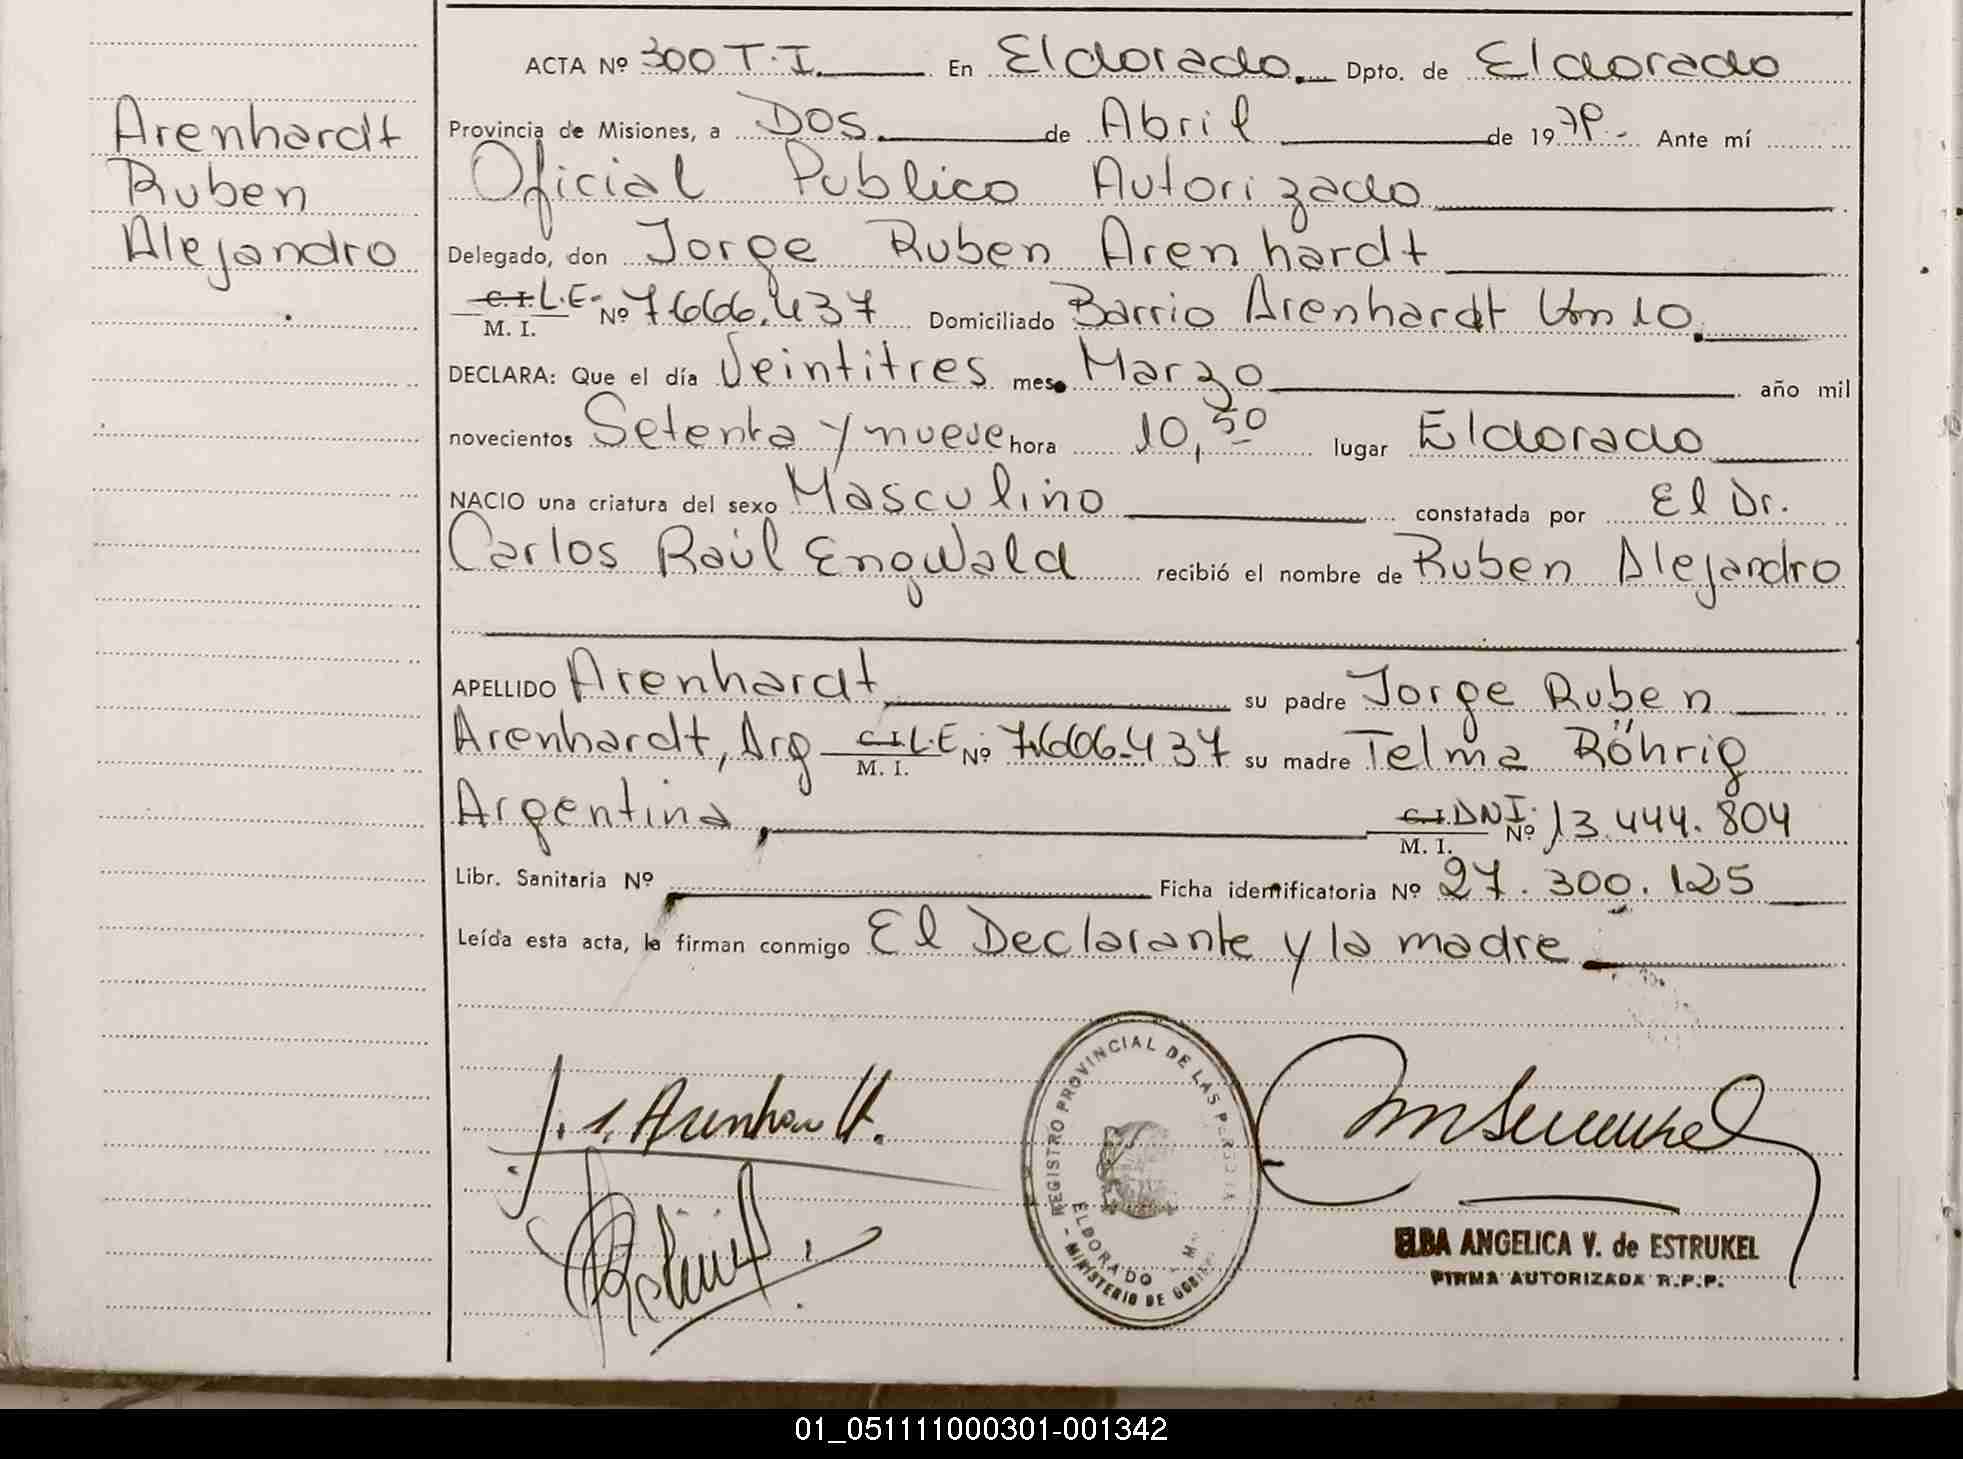 ACTA Nº 300 T.I. En Eldorado. Dpto. de Eldorado
Arenhardt
Ruben
Alejandro
Provincia de Misiones, a Dos. de Abril de 1979.- Ante mí
Oficial Publico Autorizado
Delegado, don Jorge Ruben Arenhardt
C.I. L.E. Nº 7.666.437 Domiciliado Barrio Arenhardt Km 10.
M. I.
DECLARA: Que el día Veintitres mes Marzo año mil
novecientos Setenta y nueve hora 10,50 lugar Eldorado
NACIO una criatura del sexo Masculino constatada por El Dr.
Carlos Raúl Engwald recibió el nombre de Ruben Alejandro
APELLIDO Arenhardt su padre Jorge Ruben
Arenhardt, Arg C.I. L.E Nº 7.666.437 su madre Telma Röhrig
M. I.
Argentina, C.I. DNI. Nº 13.444.804
M. I.
Libr. Sanitaria Nº Ficha identificatoria Nº 27.300.125
Leída esta acta, la firman conmigo El Declarante y la madre
REGISTRO PROVINCIAL DE LAS
ELDORADO
MINISTERIO DE
J. Arenhardt.
ELBA ANGELICA V. de ESTRUKEL
FIRMA AUTORIZADA R.P.P.
01_051111000301-001342